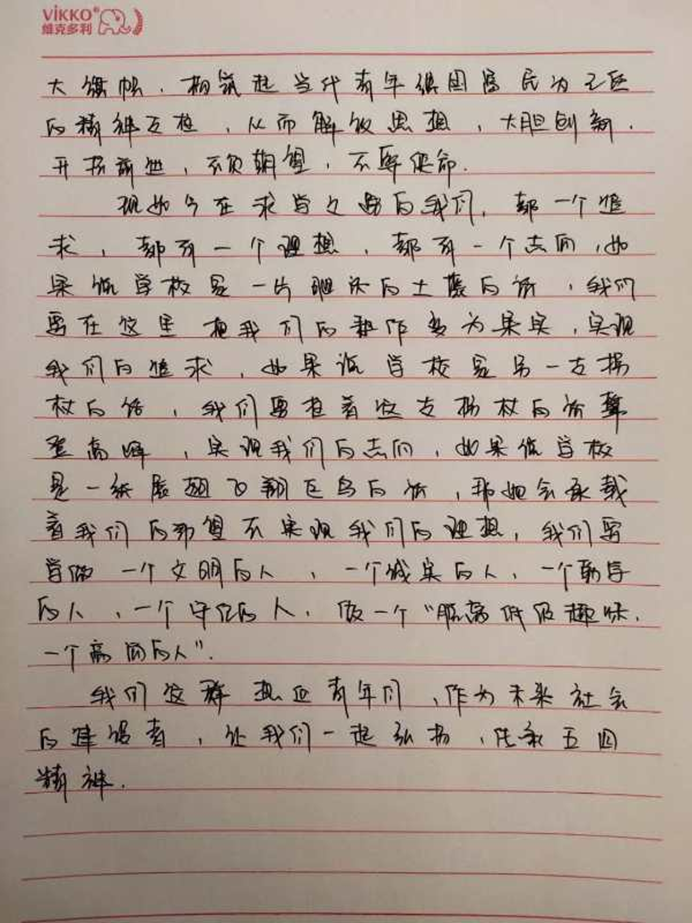 VIKKO®
维克多利
大旗帜，构筑起当代青年强国富民为己任
的精神支柱，从而解放思想，大胆创新，
开拓前进，不负期望，不辱使命．
现如今在求学之路的我们，都一个追
求，都有一个理想，都有一个志向，如
果说学校是一片肥沃的土壤的话，我们
要在这里把我们的耕作变为果实，实现
我们的追求，如果说学校是另一支拐
杖的话，我们要拄着这支拐杖的话攀
登高峰，实现我们的志向，如果说学校
是一只展翅飞翔巨鸟的话，那她会承载
着我们的希望去实现我们的理想，我们要
学做一个文明的人，一个诚实的人，一个勤学
的人，一个守纪的人，做一个“脱离低级趣味，
一个高尚的人”．
我们这群热血青年们，作为未来社会
的建设者，让我们一起弘扬，传承五四
精神．